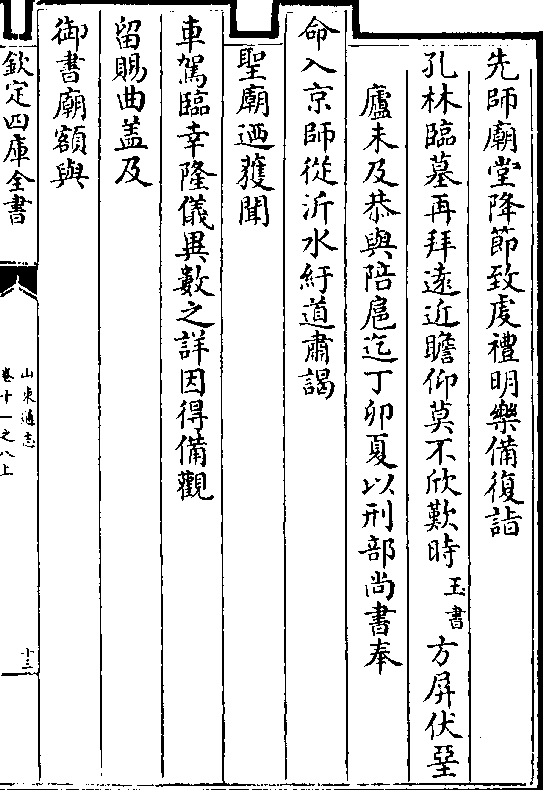 先師廟堂降節致䖍禮明樂備復詣
孔林臨墓再拜遠近瞻仰莫不欣歎時玉書方屏伏堊
廬未及恭與陪扈迄丁卯夏以刑部尚書奉
命入京師從沂水紆道肅謁
聖廟廼獲聞
車駕臨幸隆儀異數之詳因得備觀
留賜曲盖及
御書廟額與
欽定四庫全書
山東通志
卷十一之八上
十三